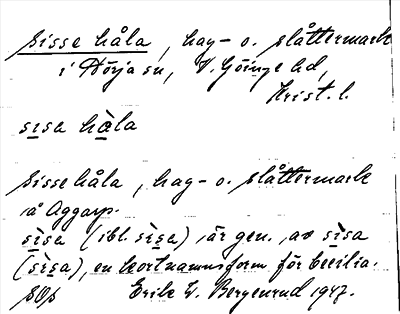 Sisse håla, hag- o. slåttermark
i Nörja sn, V. Göinge hd,
Krist. l.
sisa hàla
Sisse håla, hag- o. slåttermark
å Aggarp.
sìsa (ibl. sìsa) är gen. av sìsa
(sìsa), en kortnamnsform för Cecilia.
Erik W. Bergenrud 1947.